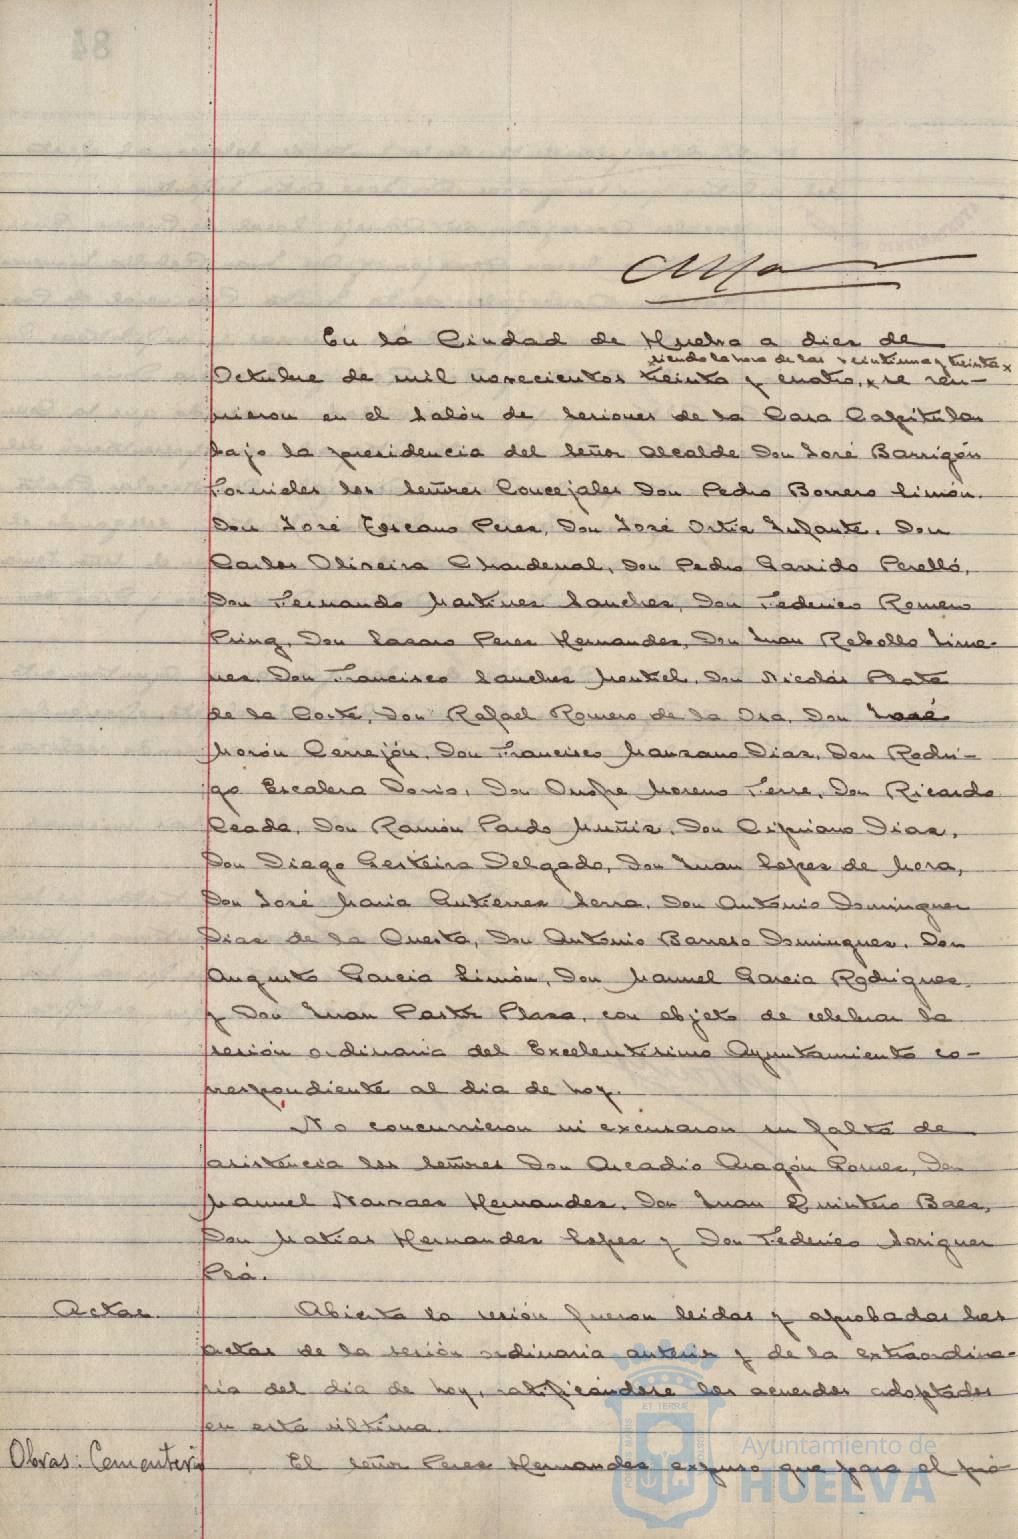 84
En la Ciudad de Huelva a diez de
siendo la hora de las veintiuna y treinta x
Octubre de mil novecientos treinta y cuatro, x se reu-
nieron en el Salón de Sesiones de la Casa Capitular
bajo la presidencia del Señor Alcalde Don José Barrigón
Fornieles los Señores Concejales Don Pedro Borrero Limón.
Don José Toscano Perez, Don José Ortiz Infante. Don
Carlos Oliveira Chardenal, Don Pedro Garrido Perelló,
Don Fernando Martinez Sanchez, Don Federico Romero
Pring, Don Lazaro Perez Hernandez, Don Juan Rebollo Jime-
nez, Don Francisco Sanchez Montiel, Don Nicolás Plata
de la Corte, Don Rafael Romero de la Osa, Don José
Morón Cerrejón, Don Francisco Manzano Diaz, Don Rodri-
go Escalera Dorio, Don Onofre Moreno Ferre, Don Ricardo
Ceada, Don Ramón Pardo Muñiz, Don Cipriano Diaz,
Don Diego Gesteira Delgado, Don Juan Lopez de Mora,
Don José Maria Gutierrez Serra, Don Antonio Dominguez
Diaz de la Cuesta, Don Antonio Barroso Dominguez, Don
Augusto Garcia Limón, Don Manuel Garcia Rodriguez,
y Don Juan Pastor Plaza, con objeto de celebrar la
sesión ordinaria del Excelentisimo Ayuntamiento co-
rrespondiente al dia de hoy.
No concurrieron ni excusaron su falta de
asistencia los Señores Don Arcadio Aragón Gomez, Don
Manuel Narvaez Hernandez, Don Juan Quintero Baez,
Don Matias Hernandez Lopez y Don Federico Seriguer
Pró.
Actas. Abierta la sesión fueron leidas y aprobadas las
actas de la sesión ordinaria anterior y de la extraordina-
ria del dia de hoy, ratificándose los acuerdos adoptados
en esta última.
Obras: Cementerio El Señor Perez Hernandez expuso que para el pró-
Ayuntamiento de
HUELVA